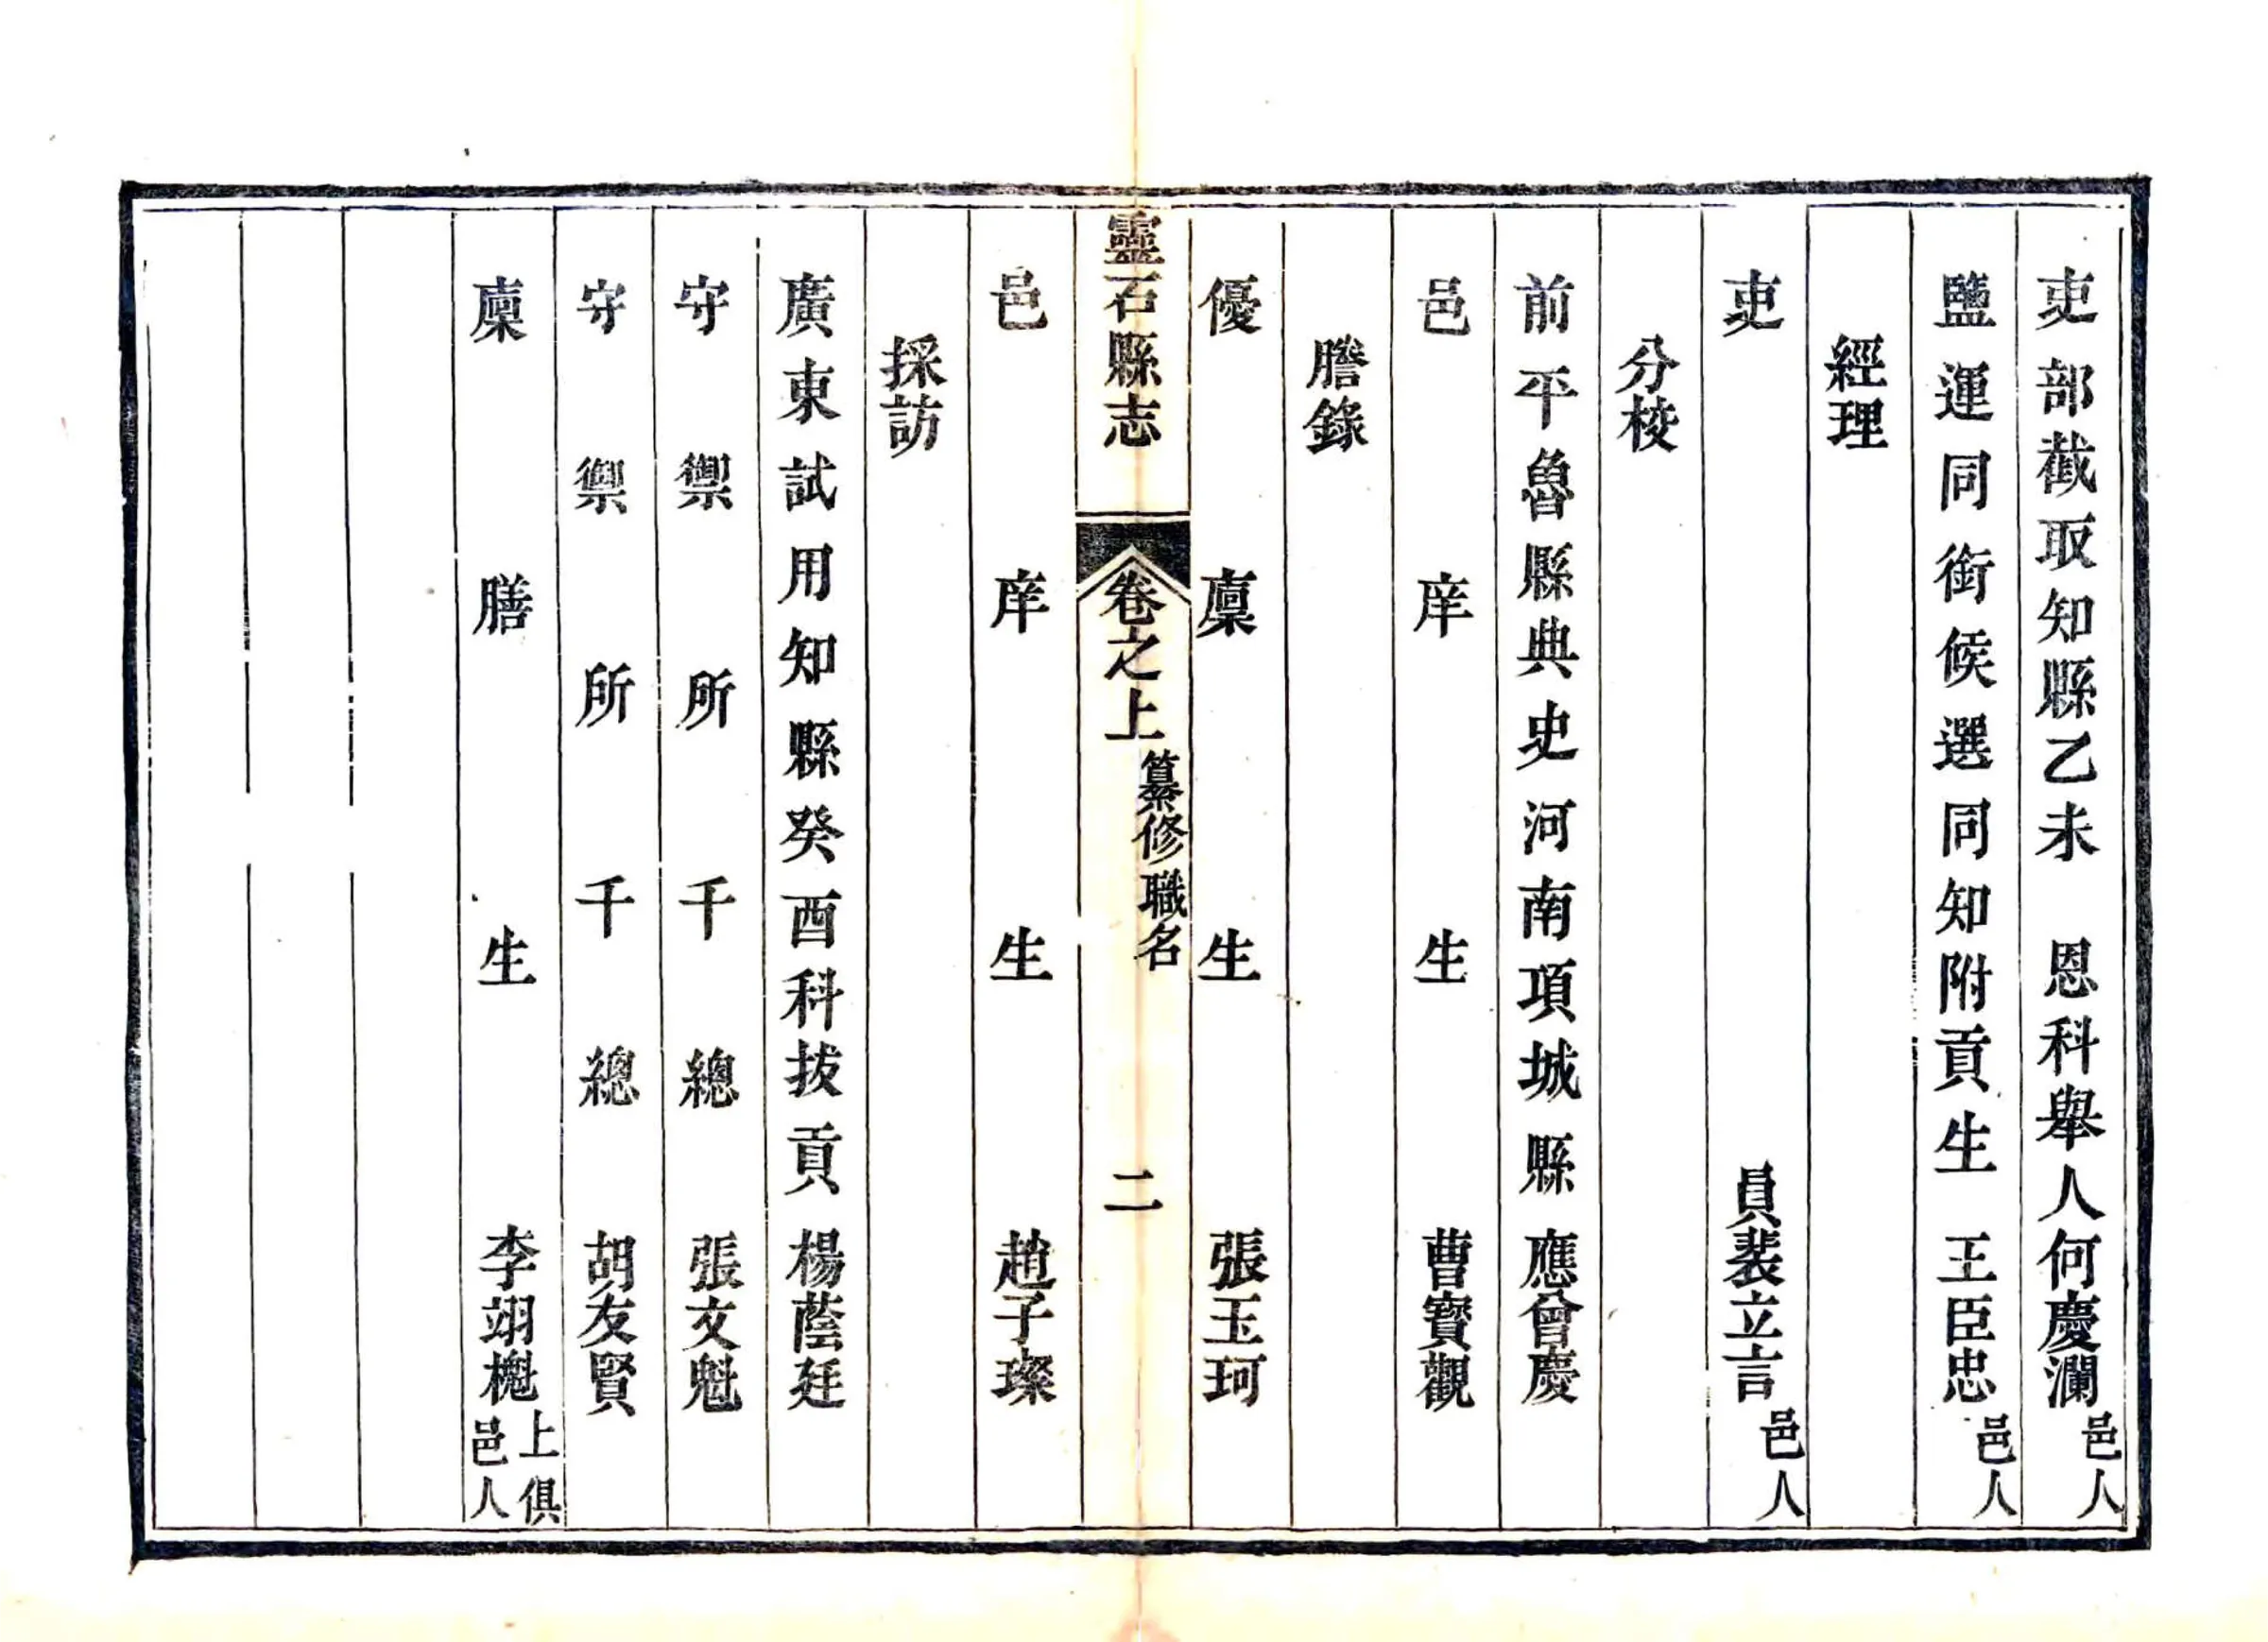 吏部截取知縣乙未　恩科舉人何慶瀾邑人
鹽運同銜候選同知附貢生　王臣忠邑人
經理
吏　員裴立言邑人
分校
前平魯縣典史河南項城縣　應曾慶
邑庠生　曹寶觀
謄錄
優廩生　張玉珂
靈石縣志　卷之上　纂修職名　二
邑庠生　趙子璨
採訪
廣東試用知縣癸酉科拔貢　楊蔭廷
守禦所千總　張文魁
守禦所千總　胡友賢
廩膳生　李翊槐上俱邑人